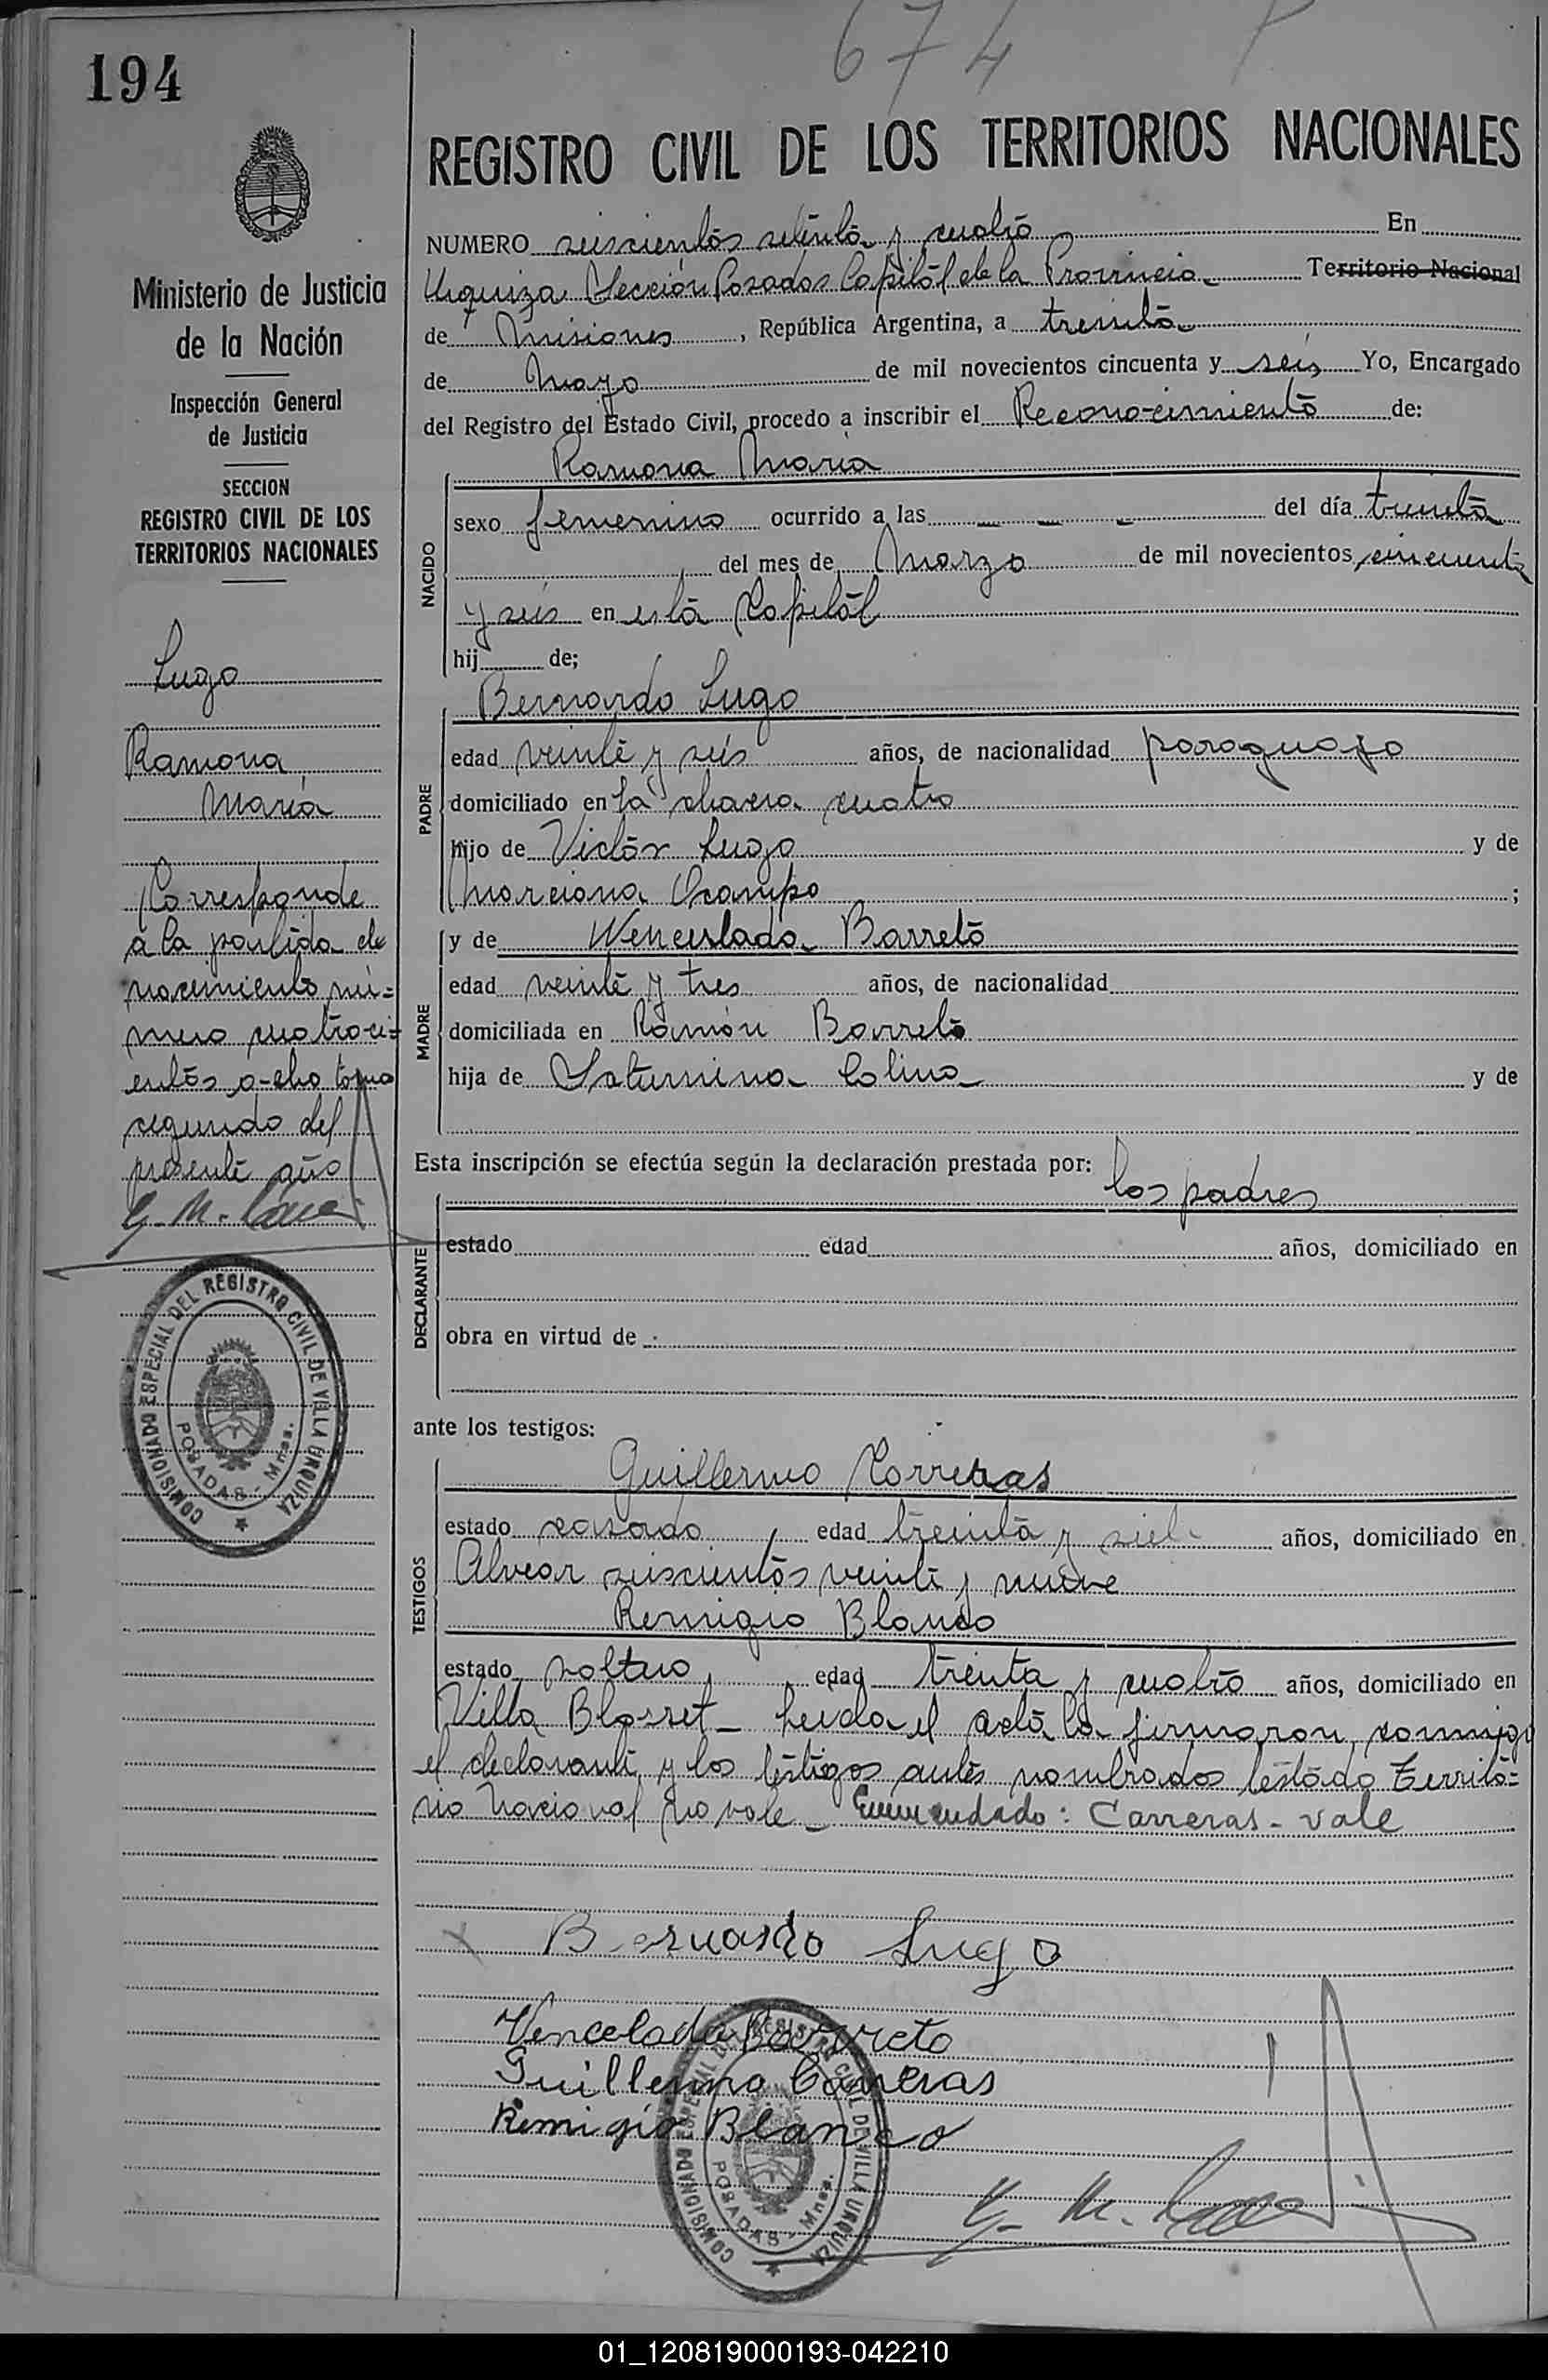 674
194
REGISTRO CIVIL DE LOS TERRITORIOS NACIONALES
NUMERO seiscientos setenta y cuatro En
Urquiza Sección Posadas Capital de la Provincia Territorio Nacional
de Misiones, República Argentina, a treinta
de Mayo de mil novecientos cincuenta y seis Yo, Encargado
del Registro del Estado Civil, procedo a inscribir el Reconocimiento de:
Ramona María
NACIDO
sexo femenino ocurrido a las — — — del día treinta
del mes de Marzo de mil novecientos cincuenta
y seis en esta Capital
hij de;
Bernardo Lugo
PADRE
edad veinte y seis años, de nacionalidad paraguayo
domiciliado en la chacra cuatro
hijo de Victor Lugo y de
Marciana Ocampo ;
MADRE
y de Wenceslada Barreto
edad veinte y tres años, de nacionalidad
domiciliada en Ramón Barreto
hija de Saturnina Colina y de
Esta inscripción se efectúa según la declaración prestada por:
los padres
DECLARANTE
estado edad años, domiciliado en
obra en virtud de
ante los testigos:
TESTIGOS
Guillermo Carreras
estado casado, edad treinta y siete años, domiciliado en
Alvear seiscientos veinte y nueve
Remigio Blanco
estado soltero, edad trenta y cuatro años, domiciliado en
Villa Blosset - Leida el acta la firmaron conmigo
el declarante y los testigos antes nombrados testado Territo=
rio Nacional no vale - Enmendado: Carreras - vale
Bernardo Lugo
Vencelada Barreto
Guillermo Carreras
Remigio Blanco
COMISIONADO ESPECIAL DEL REGISTRO CIVIL DE VILLA URQUIZA
POSADAS - Mnes.
Ministerio de Justicia
de la Nación
Inspección General
de Justicia
SECCION
REGISTRO CIVIL DE LOS
TERRITORIOS NACIONALES
Lugo
Ramona
María
Corresponde
a la partida de
nacimiento nú=
mero cuatroci=
entos ocho tomo
segundo del
presente año
COMISIONADO ESPECIAL DEL REGISTRO CIVIL DE VILLA URQUIZA
POSADAS - Mnes.
01_120819000193-042210